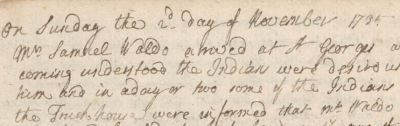 On Sunday the 2d. day of November 1735
Mr. Samuel Waldo arived at St Georges a
coming understood the Indians were desirous
him and in a day or two some of the Indians
the Truckhouse were informed that Mr Waldo